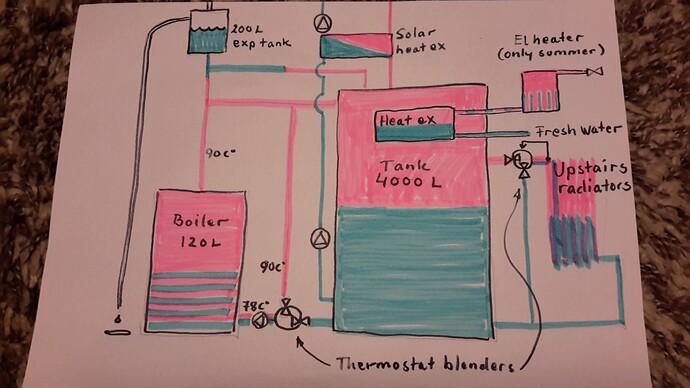 200L
exp tank
Solar
heat ex
El heater
(only summer)
Heat ex
Fresh Water
90c°
Tank
4000 L
Upstairs
radiators
Boiler
120L
90c°
78c°
Thermostat blenders